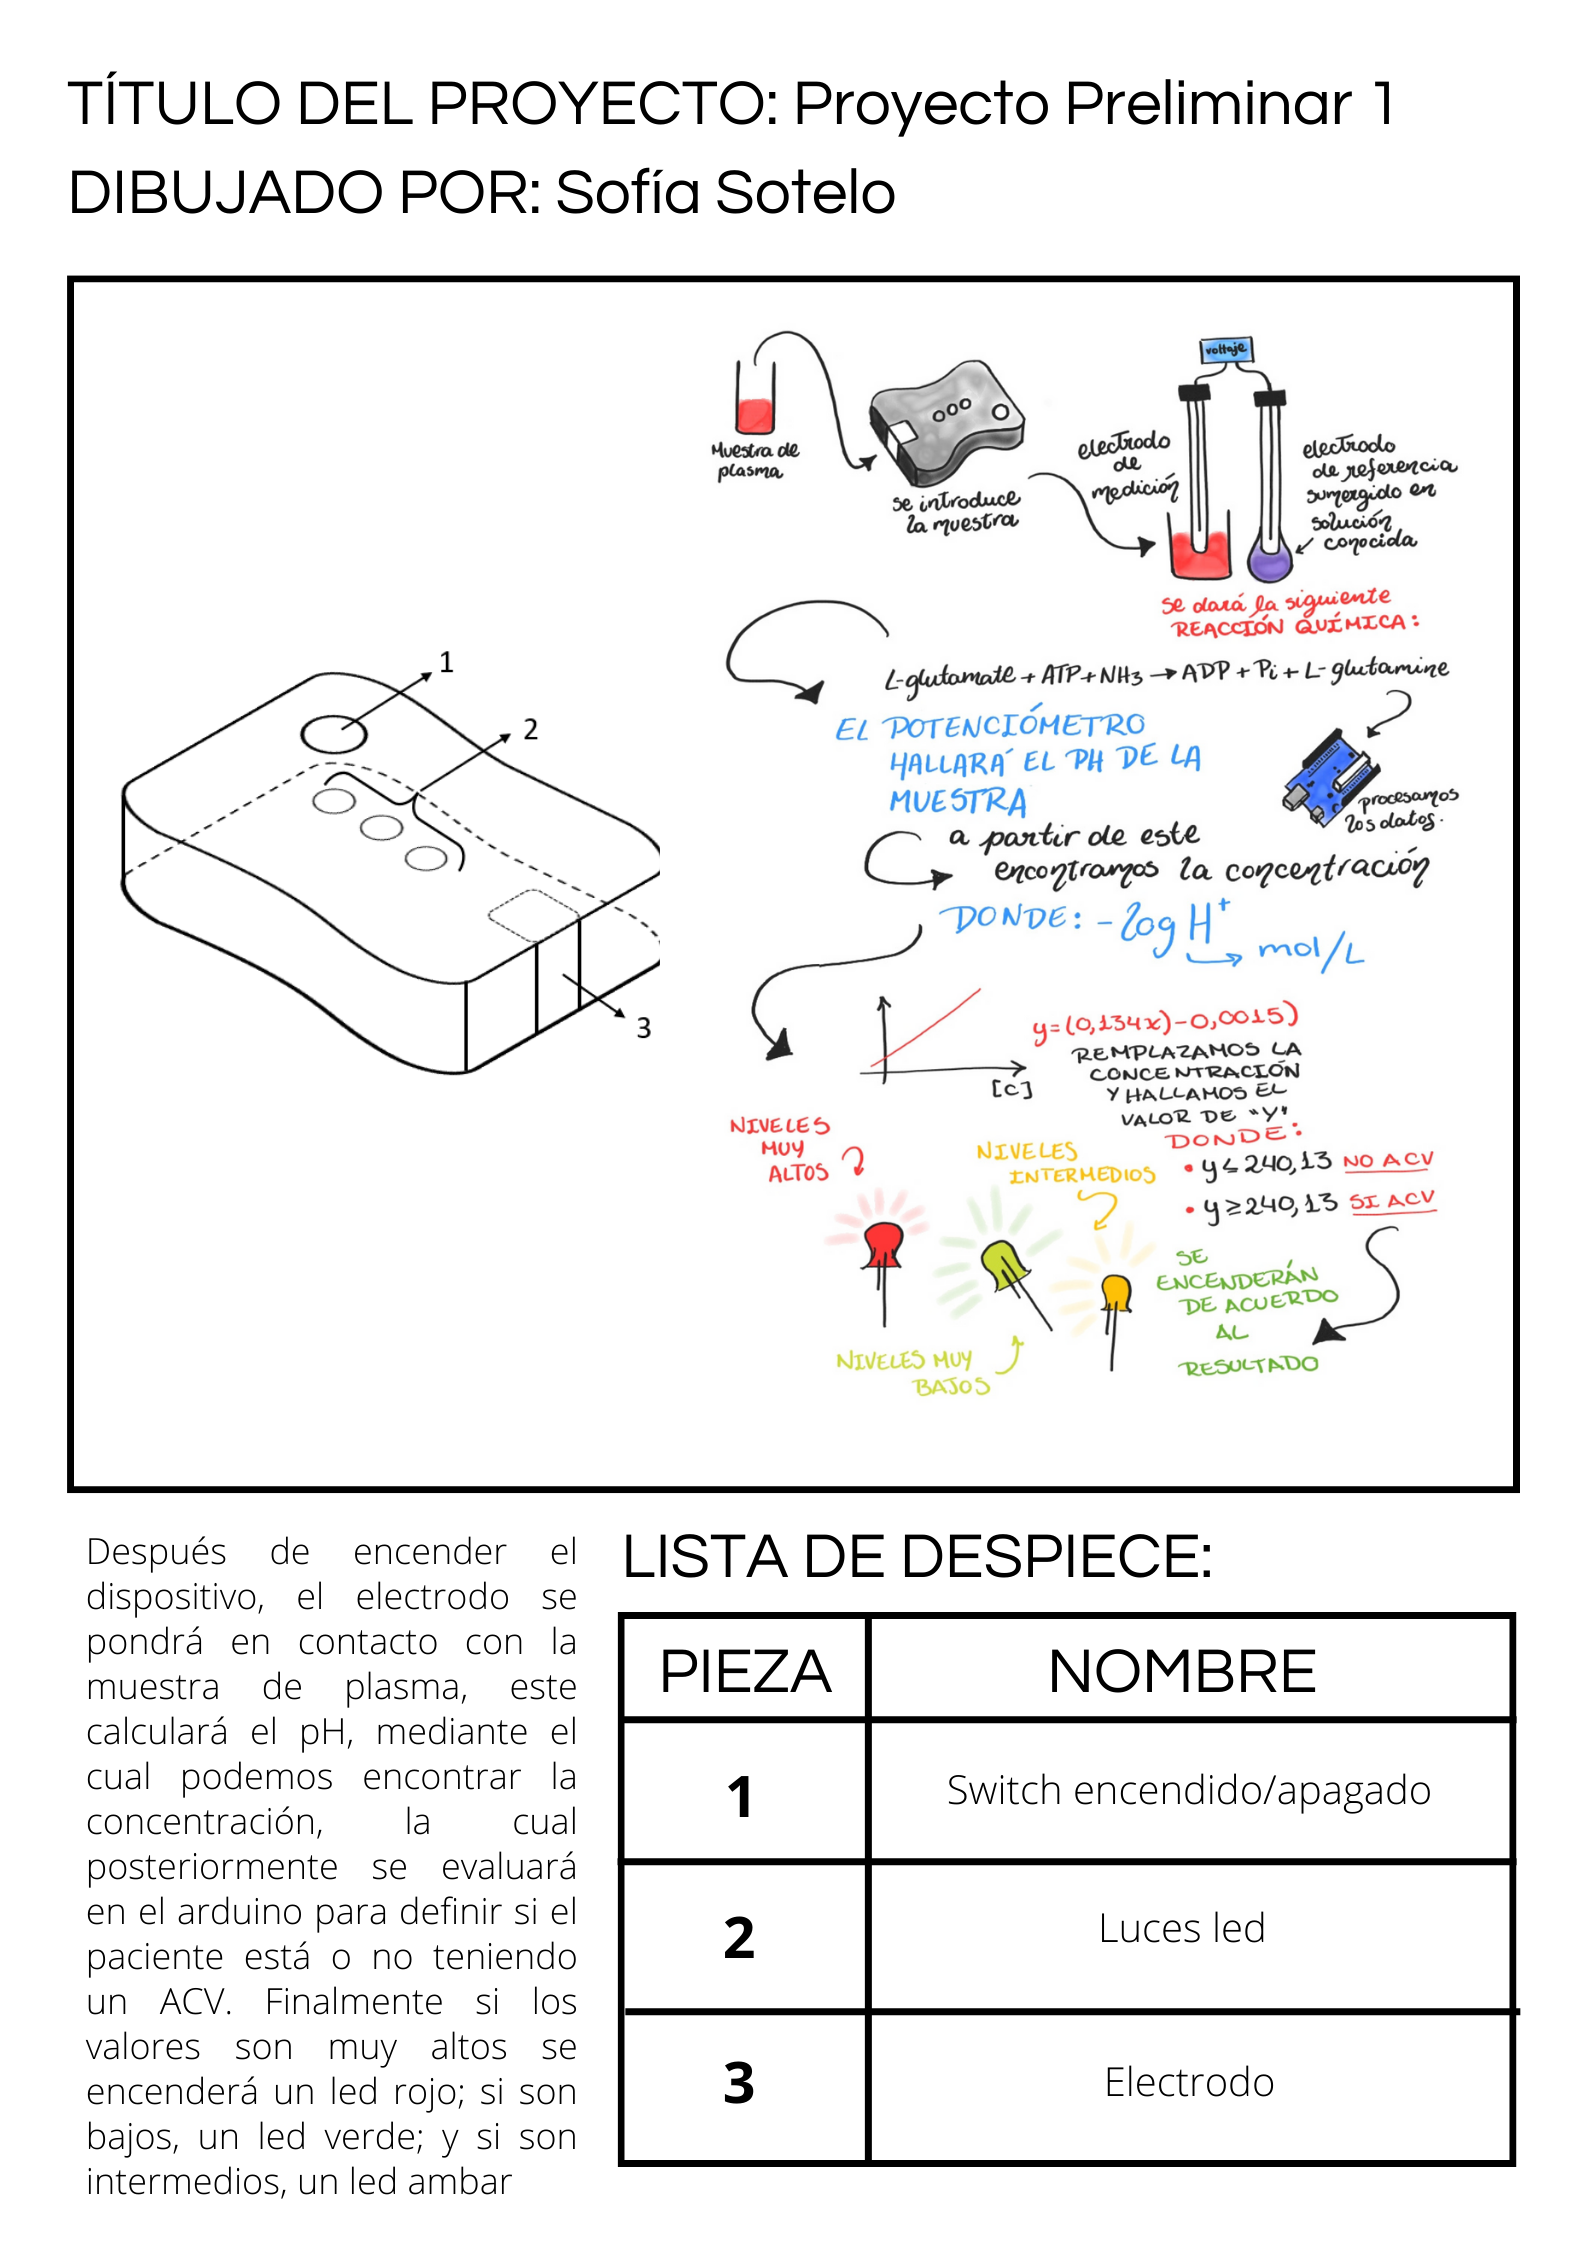 TÍTULO DEL PROYECTO: Proyecto Preliminar 1
DIBUJADO POR: Sofía Sotelo
1
2
3
Muestra de
plasma
se introduce
la muestra
voltaje
electrodo
de
medición
electrodo
de referencia
sumergido en
solución
conocida
se dará la siguiente
REACCIÓN QUÍMICA:
L-glutamate + ATP + NH3 → ADP + Pi + L-glutamine
EL POTENCIÓMETRO
HALLARÁ EL PH DE LA
MUESTRA
procesamos
los datos.
a partir de este
encontramos la concentración
DONDE: -log H+
mol/L
[c]
y=(0,134x)-0,0015)
REMPLAZAMOS LA
CONCENTRACIÓN
Y HALLAMOS EL
VALOR DE "Y"
DONDE:
• y≤240,13 NO ACV
• y≥240,13 SI ACV
NIVELES
MUY
ALTOS
NIVELES
INTERMEDIOS
NIVELES MUY
BAJOS
SE
ENCENDERÁN
DE ACUERDO
AL
RESULTADO
Después de encender el
dispositivo, el electrodo se
pondrá en contacto con la
muestra de plasma, este
calculará el pH, mediante el
cual podemos encontrar la
concentración, la cual
posteriormente se evaluará
en el arduino para definir si el
paciente está o no teniendo
un ACV. Finalmente si los
valores son muy altos se
encenderá un led rojo; si son
bajos, un led verde; y si son
intermedios, un led ambar
LISTA DE DESPIECE:
PIEZA NOMBRE
1 Switch encendido/apagado
2 Luces led
3 Electrodo